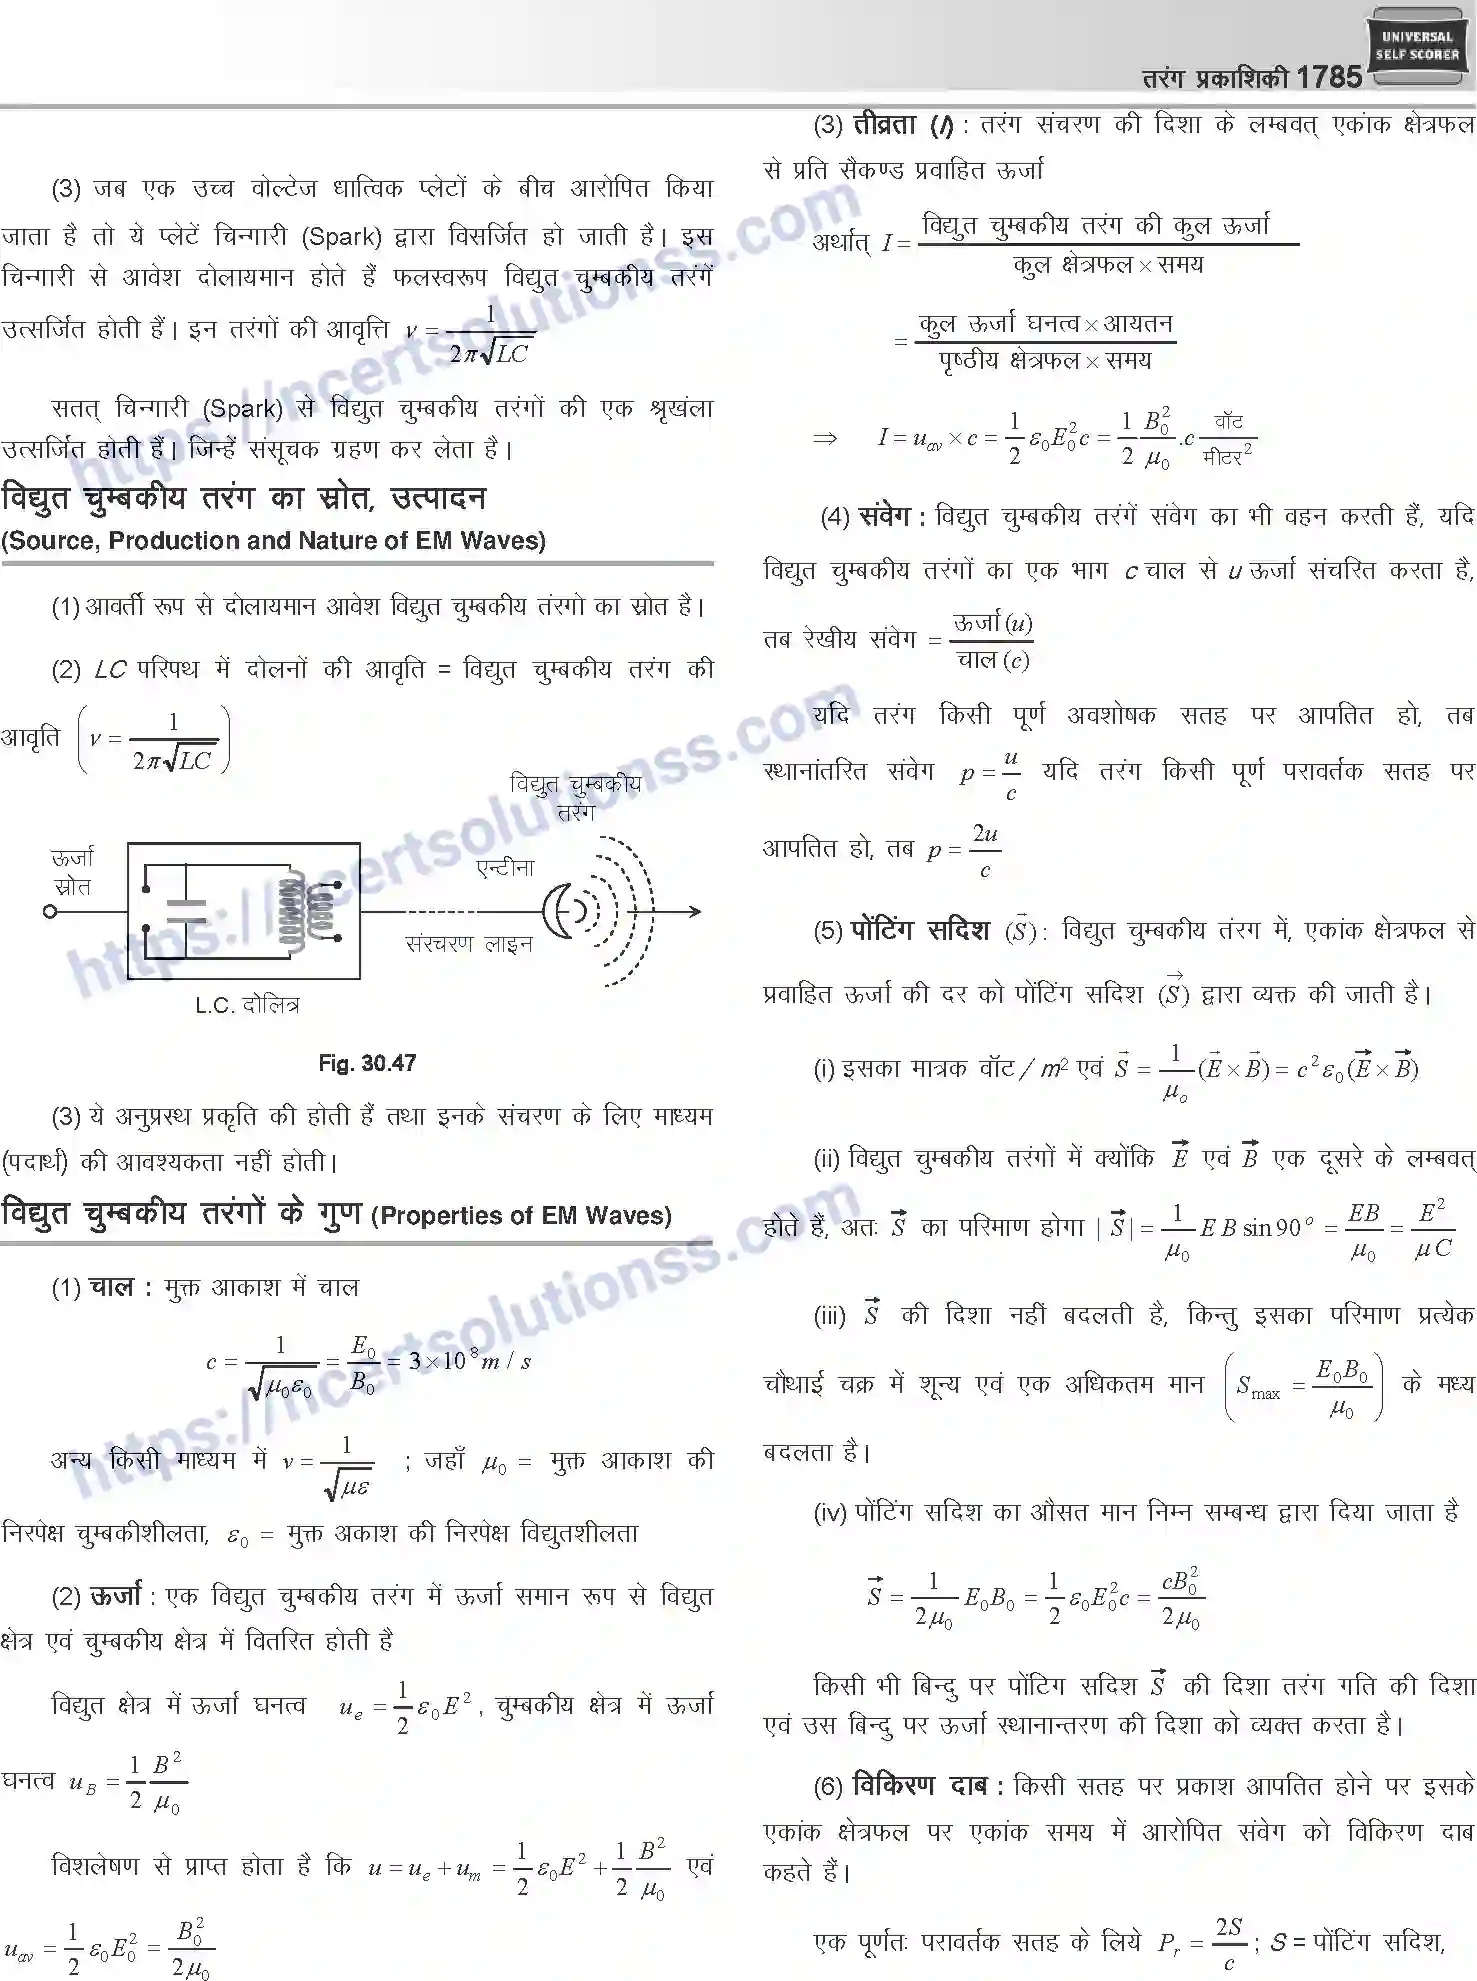 UNIVERSAL
SELF SCORER
तरंग प्रकाशिकी 1785
(3) जब एक उच्च वोल्टेज धात्विक प्लेटों के बीच आरोपित किया
जाता है तो ये प्लेटें चिन्गारी (Spark) द्वारा विसर्जित हो जाती है। इस
चिन्गारी से आवेश दोलायमान होते हैं फलस्वरूप विद्युत चुम्बकीय तरंगें
उत्सर्जित होती हैं। इन तरंगों की आवृत्ति ν = 1/(2π√LC)
सतत् चिन्गारी (Spark) से विद्युत चुम्बकीय तरंगों की एक श्रृखंला
उत्सर्जित होती हैं। जिन्हें संसूचक ग्रहण कर लेता है।
विद्युत चुम्बकीय तरंग का स्रोत, उत्पादन
(Source, Production and Nature of EM Waves)
(1) आवर्ती रूप से दोलायमान आवेश विद्युत चुम्बकीय तंरगो का स्रोत है।
(2) LC परिपथ में दोलनों की आवृति = विद्युत चुम्बकीय तरंग की
आवृति (ν = 1/(2π√LC))
विद्युत चुम्बकीय
तरंग
ऊर्जा
स्रोत
एन्टीना
संरचरण लाइन
L.C. दोलित्र
Fig. 30.47
(3) ये अनुप्रस्थ प्रकृति की होती हैं तथा इनके संचरण के लिए माध्यम
(पदार्थ) की आवश्यकता नहीं होती।
विद्युत चुम्बकीय तरंगों के गुण (Properties of EM Waves)
(1) चाल : मुक्त आकाश में चाल
c = 1/√(μ₀ε₀) = E₀/B₀ = 3×10⁸ m / s
अन्य किसी माध्यम में v = 1/√(με) ; जहाँ μ₀ = मुक्त आकाश की
निरपेक्ष चुम्बकीशीलता, ε₀ = मुक्त अकाश की निरपेक्ष विद्युतशीलता
(2) ऊर्जा : एक विद्युत चुम्बकीय तरंग में ऊर्जा समान रूप से विद्युत
क्षेत्र एवं चुम्बकीय क्षेत्र में वितरित होती है
विद्युत क्षेत्र में ऊर्जा घनत्व u_e = 1/2 ε₀E², चुम्बकीय क्षेत्र में ऊर्जा
घनत्व u_B = 1/2 B²/μ₀
विशलेषण से प्राप्त होता है कि u = u_e + u_m = 1/2 ε₀E² + 1/2 B²/μ₀ एवं
u_av = 1/2 ε₀E₀² = B₀²/2μ₀
(3) तीव्रता (I) : तरंग संचरण की दिशा के लम्बवत् एकांक क्षेत्रफल
से प्रति सैकण्ड प्रवाहित ऊर्जा
अर्थात् I = विद्युत चुम्बकीय तरंग की कुल ऊर्जा / कुल क्षेत्रफल × समय
= कुल ऊर्जा घनत्व × आयतन / पृष्ठीय क्षेत्रफल × समय
⇒ I = u_av × c = 1/2 ε₀E₀²c = 1/2 B₀²/μ₀ .c वॉट/मीटर²
(4) संवेग : विद्युत चुम्बकीय तरंगें संवेग का भी वहन करती हैं, यदि
विद्युत चुम्बकीय तरंगों का एक भाग c चाल से u ऊर्जा संचरित करता है,
तब रेखीय संवेग = ऊर्जा (u) / चाल (c)
यदि तरंग किसी पूर्ण अवशोषक सतह पर आपतित हो, तब
स्थानांतरित संवेग p = u/c यदि तरंग किसी पूर्ण परावर्तक सतह पर
आपतित हो, तब p = 2u/c
(5) पोंटिंग सदिश (S⃗) : विद्युत चुम्बकीय तरंग में, एकांक क्षेत्रफल से
प्रवाहित ऊर्जा की दर को पोंटिंग सदिश (S⃗) द्वारा व्यक्त की जाती है।
(i) इसका मात्रक वॉट / m² एवं S⃗ = 1/μₒ (E⃗ × B⃗) = c²ε₀(E⃗ × B⃗)
(ii) विद्युत चुम्बकीय तरंगों में क्योंकि E⃗ एवं B⃗ एक दूसरे के लम्बवत्
होते हैं, अतः S⃗ का परिमाण होगा | S⃗ | = 1/μ₀ E B sin 90° = EB/μ₀ = E²/μC
(iii) S⃗ की दिशा नहीं बदलती है, किन्तु इसका परिमाण प्रत्येक
चौथाई चक्र में शून्य एवं एक अधिकतम मान (S_max = E₀B₀/μ₀) के मध्य
बदलता है।
(iv) पोंटिंग सदिश का औसत मान निम्न सम्बन्ध द्वारा दिया जाता है
S⃗ = 1/2μ₀ E₀B₀ = 1/2 ε₀E₀²c = cB₀²/2μ₀
किसी भी बिन्दु पर पोंटिंग सदिश S⃗ की दिशा तरंग गति की दिशा
एवं उस बिन्दु पर ऊर्जा स्थानान्तरण की दिशा को व्यक्त करता है।
(6) विकिरण दाब : किसी सतह पर प्रकाश आपतित होने पर इसके
एकांक क्षेत्रफल पर एकांक समय में आरोपित संवेग को विकिरण दाब
कहते हैं।
एक पूर्णतः परावर्तक सतह के लिये P_r = 2S/c ; S = पोंटिंग सदिश,
https://ncertsolutionss.com
https://ncertsolutionss.com
https://ncertsolutionss.com